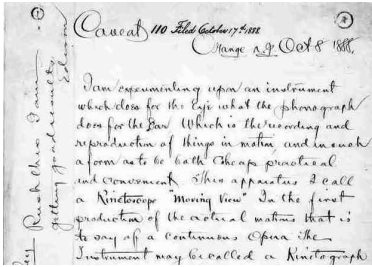 Caveat 110 Filed October 17th 1888.
Orange N.J. Oct 8 1888.
I am experimenting upon an instrument
which does for the Eye what the phonograph
does for the Ear Which is the recording and
reproduction of things in motion and in such
a form as to be both Cheap practical
and convenient This apparatus I call
a Kinetoscope "Moving View" In the first
production of the actual motions that is
to say of a continuous Opera The
Instrument may be called a Kinetograph
Rush this I am
getting good results
Edison